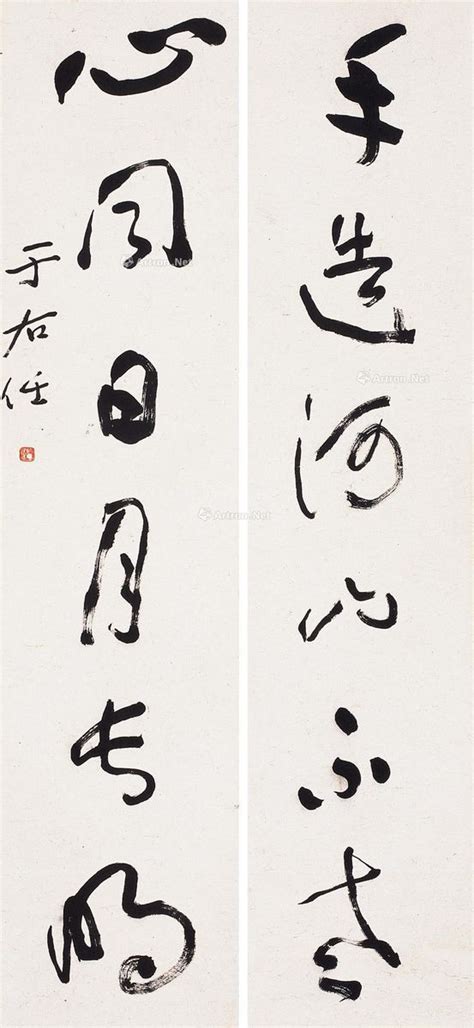 手造河山不老
心同日月長明
于右任
Artron.Net
Artron.Net
Artron.Net